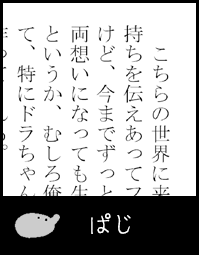 こちらの世界に来
持ちを伝えあってフ
けど、今までずっと
両想いになっても生
というか、むしろ俺
て、特にドラちゃん
ぱじ